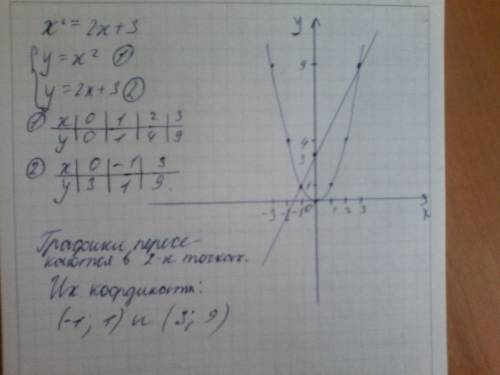 x² = 2x + 3
y = x² ①
y = 2x + 3 ②
① x | 0 | 1 | 2 | 3
y | 0 | 1 | 4 | 9
② x | 0 | -1 | 3
y | 3 | 1 | 9
Графики пересе-
каются в 2-х точках.
Их координаты:
(-1; 1) и (3; 9)
y
9
4
3
1
-3 -2 -1 0 1 2 3
x